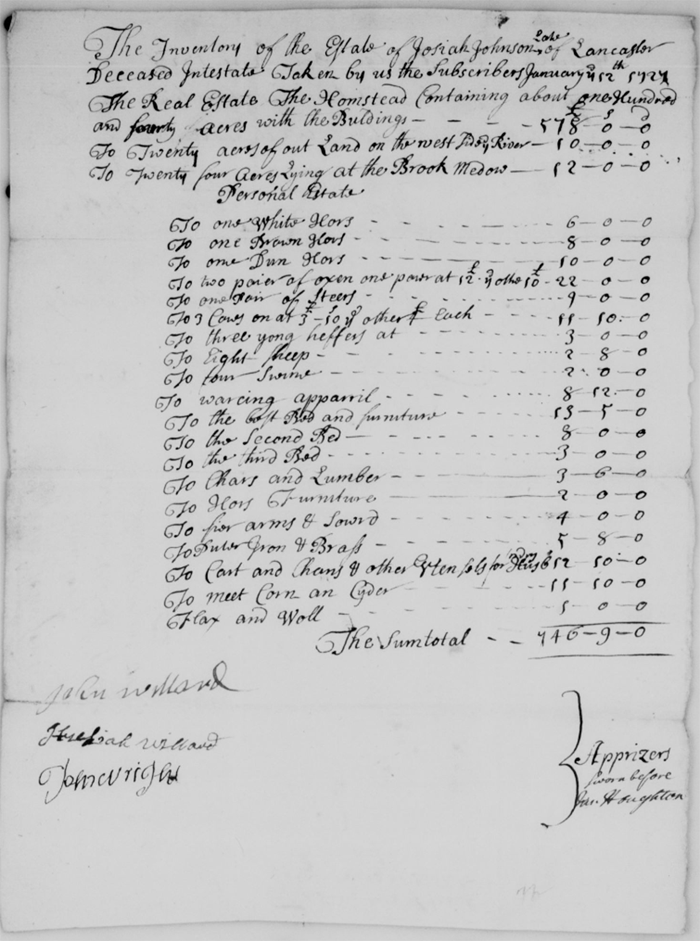 The Inventory of the Estate of Josiah Johnson Late of Lancaster
Deceased Intestate Taken by us the Subscribers January ye 12th 1727
The Real Estate The Homstead Containing about one Hundred
and acres with the Buldings - - - 578-0-0
To Twenty acres of out Land on the west side ye River - 10-0-0
To Twenty four Acres Lying at the Brook Medow - 12-0-0
Personal Estate
To one White Hors - - - 6-0-0
To one Brown Hors - - - 8-0-0
To one Dun Hors - - - 10-0-0
To two paier of oxen one paier at 12£ ye othe 10£ - 22-0-0
To one Pair of Steers - - - 9-0-0
To 3 Cows on at 3£-10 ye other 4£ Each - - 11-10-0
To three yong heffers at - - - 3-0-0
To Eight sheep - - - 2-8-0
To four Swine - - - 2-0-0
To wareing apparril - - - 8-12-0
To the best Bed and furniture - - - 15-5-0
To the Second Bed - - - 8-0-0
To the third Bed - - - 3-0-0
To Chars and Lumber - - - 3-6-0
To Hors Furniture - - - 2-0-0
To fier arms & Sword - - - 4-0-0
To Puter Iron & Brass - - - 5-8-0
To Cart and Chans & other Utensels for Husb 12-10-0
To meet Corn an Cyder - - - 11-10-0
Flax and Woll - - - 1-0-0
The Sumtotal - - 746-9-0
John Willard
Willard
Apprizers
sworn before
Houghton